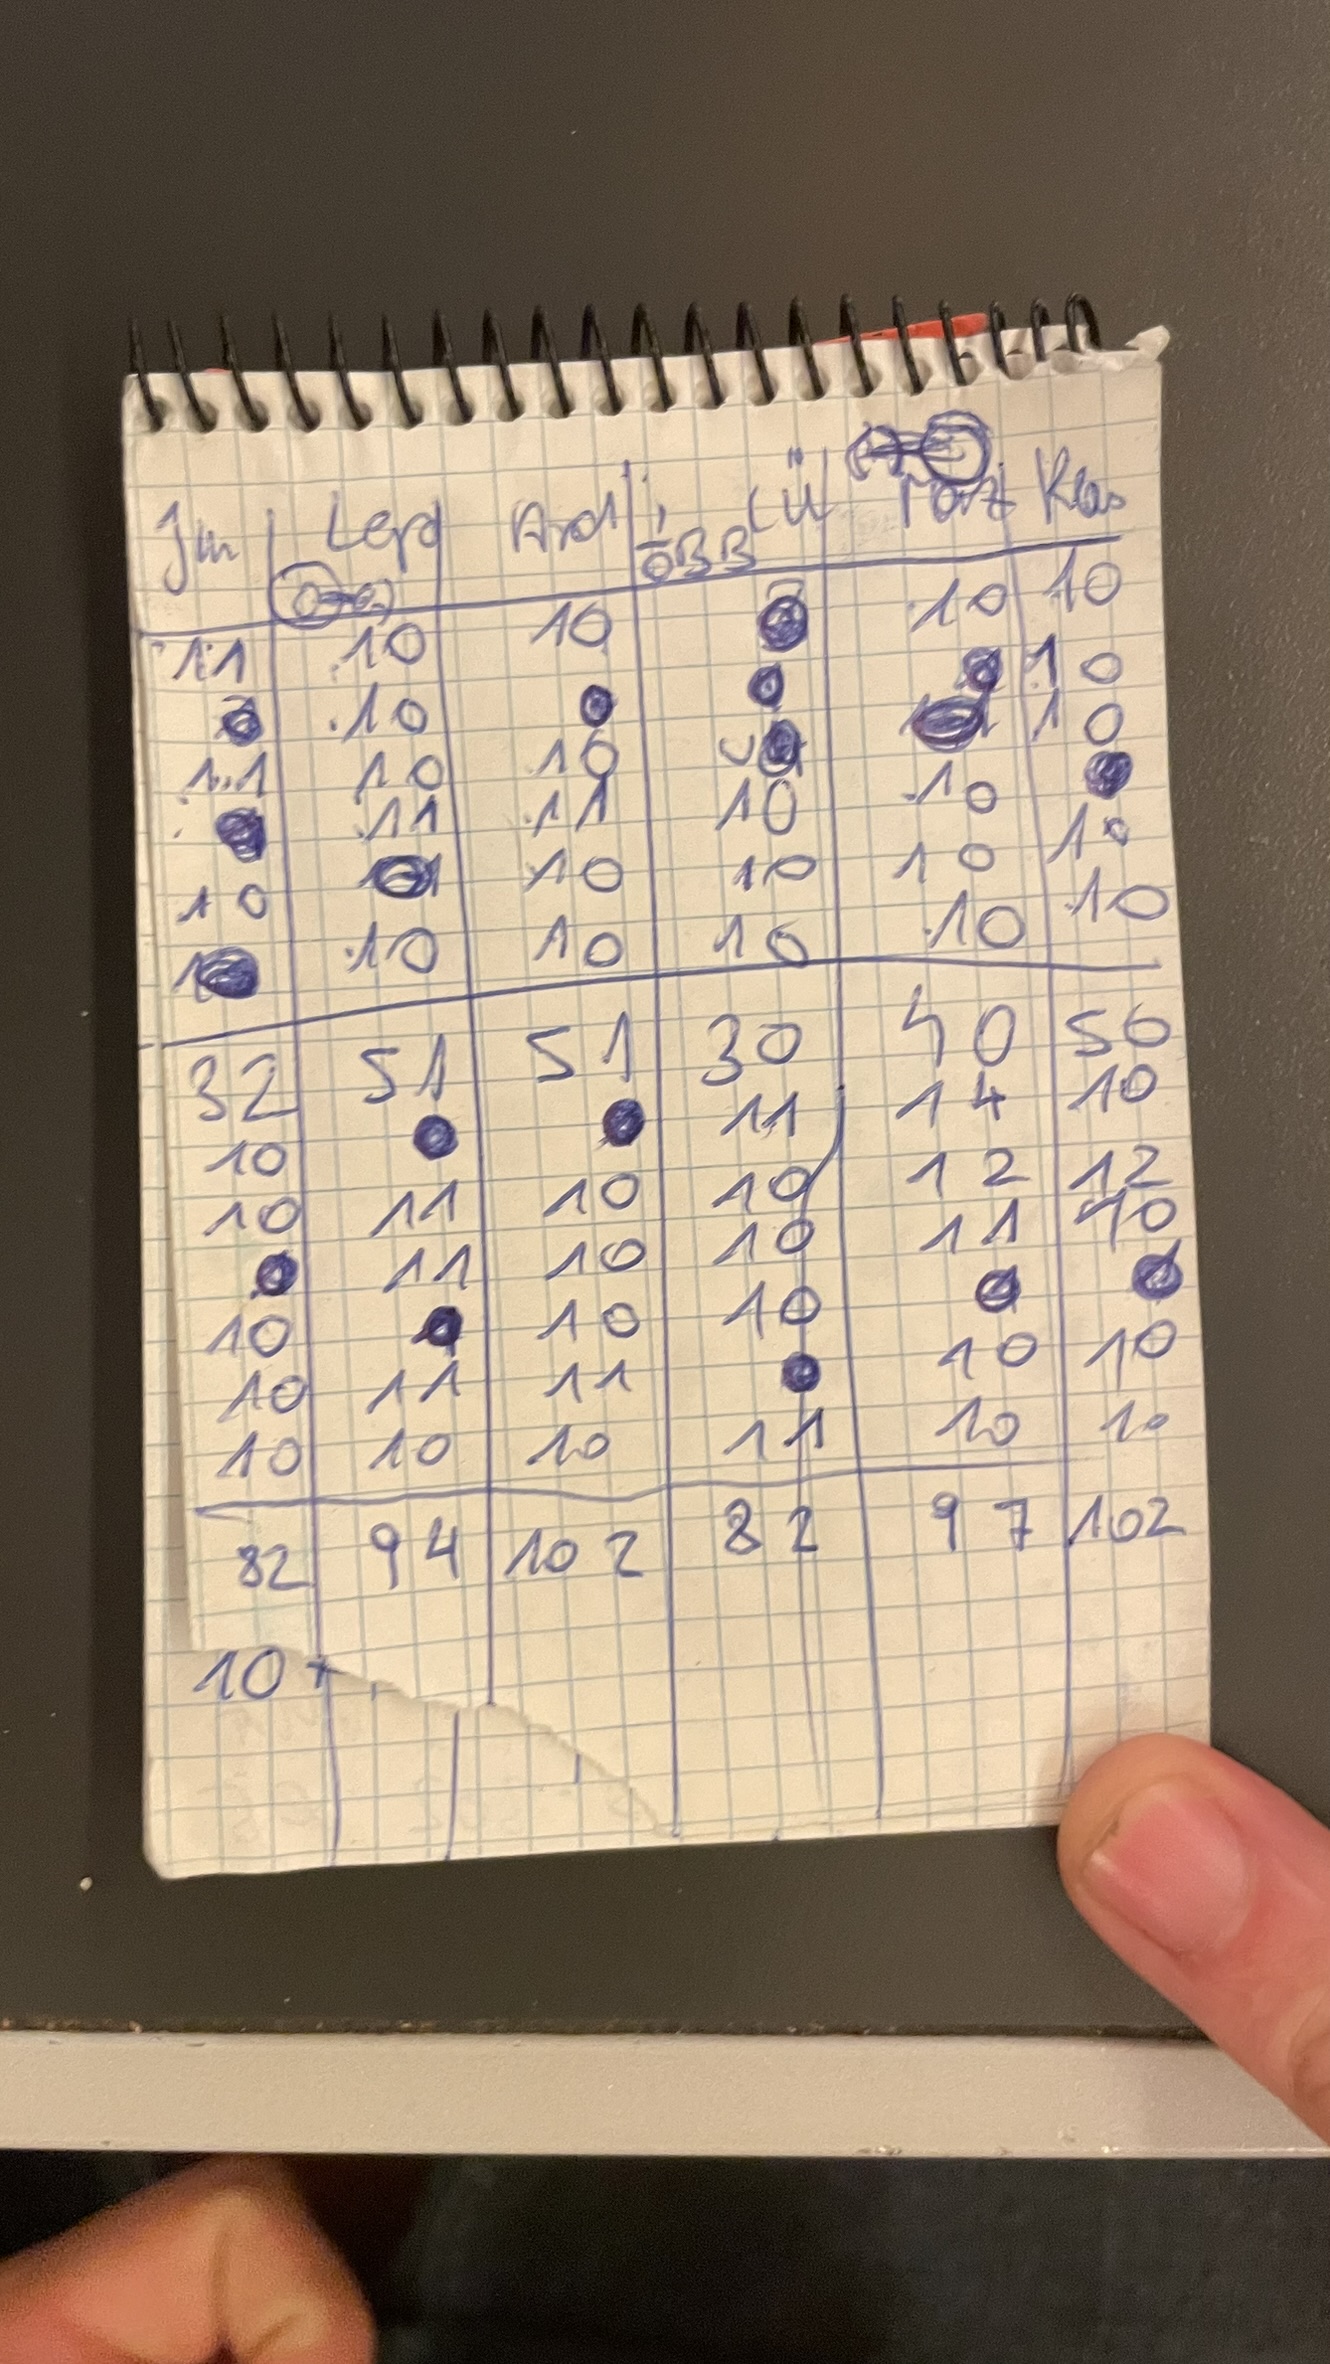 Jm Lepd Ard ÖBB LÜ Marz Klas
11 10 10 10 10
10 10
11 10 10 10
11 11 10 10 10
10 10 10 10 10
10 10 10 10 10
32 51 51 30 40 50
10 11 14 10
10 11 10 10 12 12
11 10 10 11 10
10 10 10
10 11 11 10 10
10 10 10 11 10 10
82 94 102 82 97 102
10+